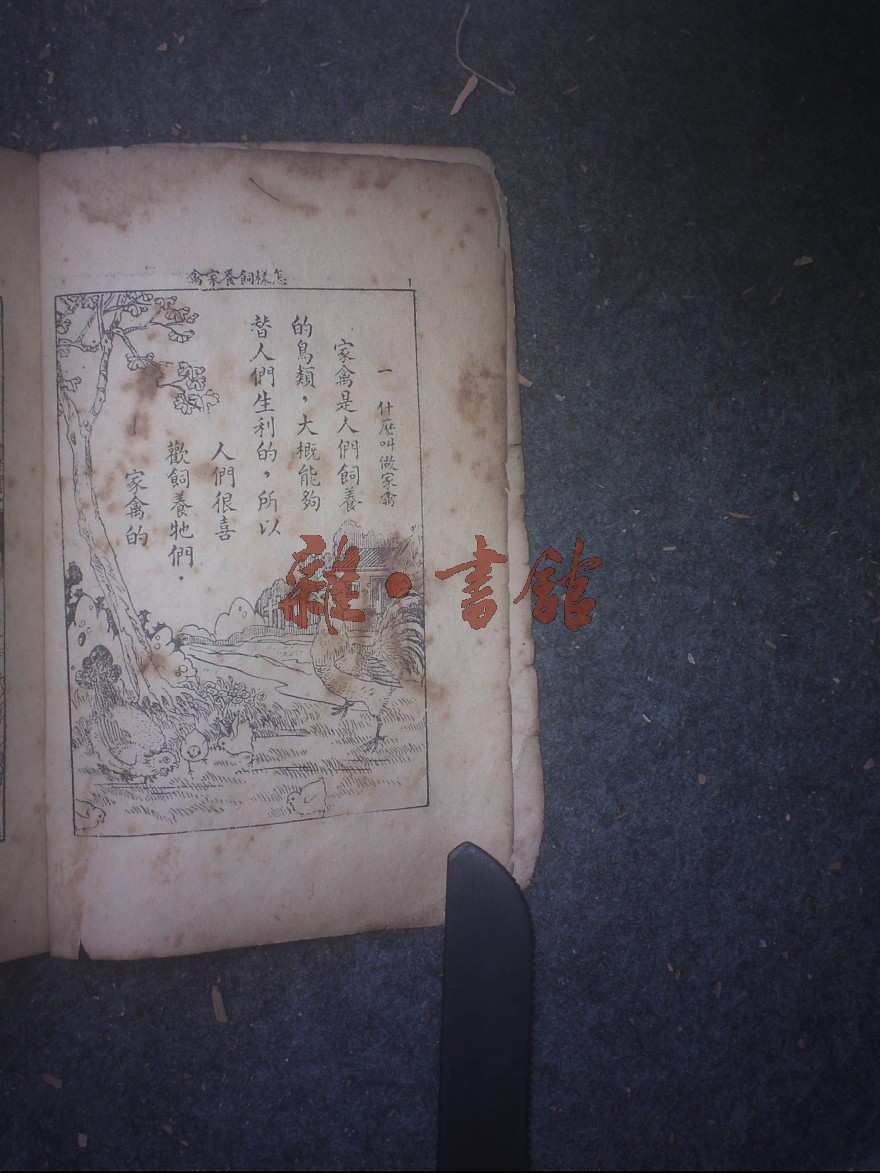 怎樣飼養家禽
1
一 什麼叫做家禽
家禽是人們飼養
的鳥類，大概能夠
替人們生利的，所以
人們很喜
歡飼養牠們．
家禽的
雜·書館